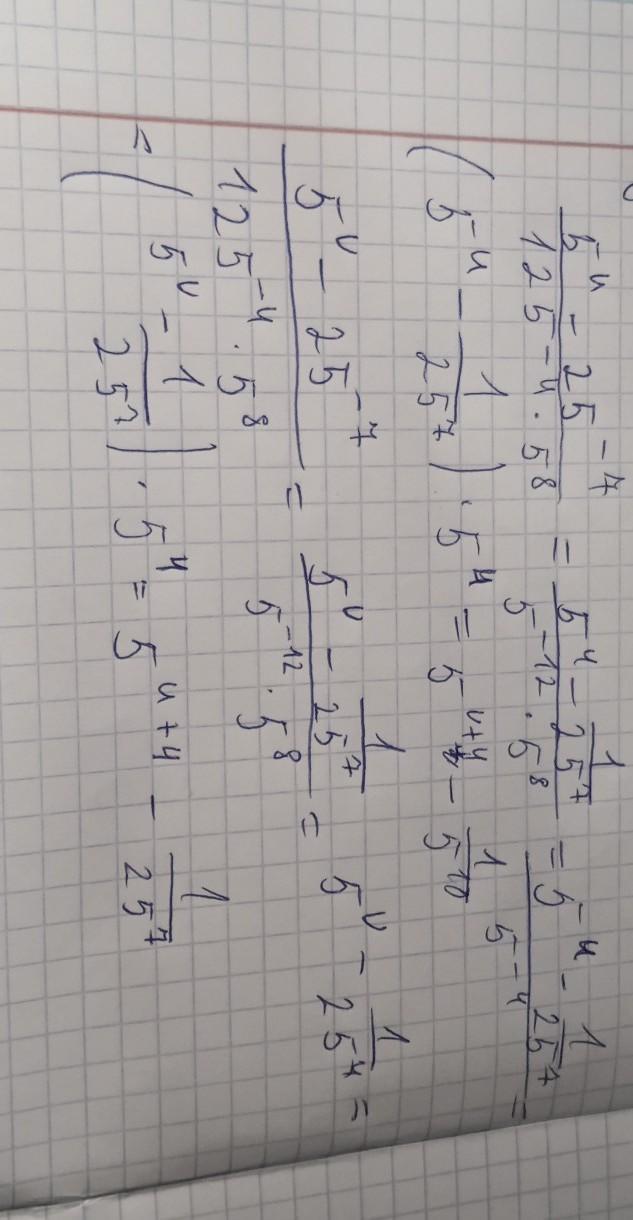 \frac{5^4 - 25^{-7}}{125^{-4} \cdot 5^8} = \frac{5^4 - \frac{1}{25^7}}{5^{-12} \cdot 5^8} = \frac{5^{-4} - \frac{1}{25^7}}{5^{-4}} =
\left( 5^{-4} - \frac{1}{25^7} \right) \cdot 5^4 = 5^{-4+4} - \frac{1}{5^{10}}
\frac{5^4 - 25^{-7}}{125^{-4} \cdot 5^8} = \frac{5^4 - \frac{1}{25^7}}{5^{-12} \cdot 5^8} = 5^4 - \frac{1}{25^4} =
= \left( 5^4 - \frac{1}{25^7} \right) \cdot 5^4 = 5^{4+4} - \frac{1}{25^7}